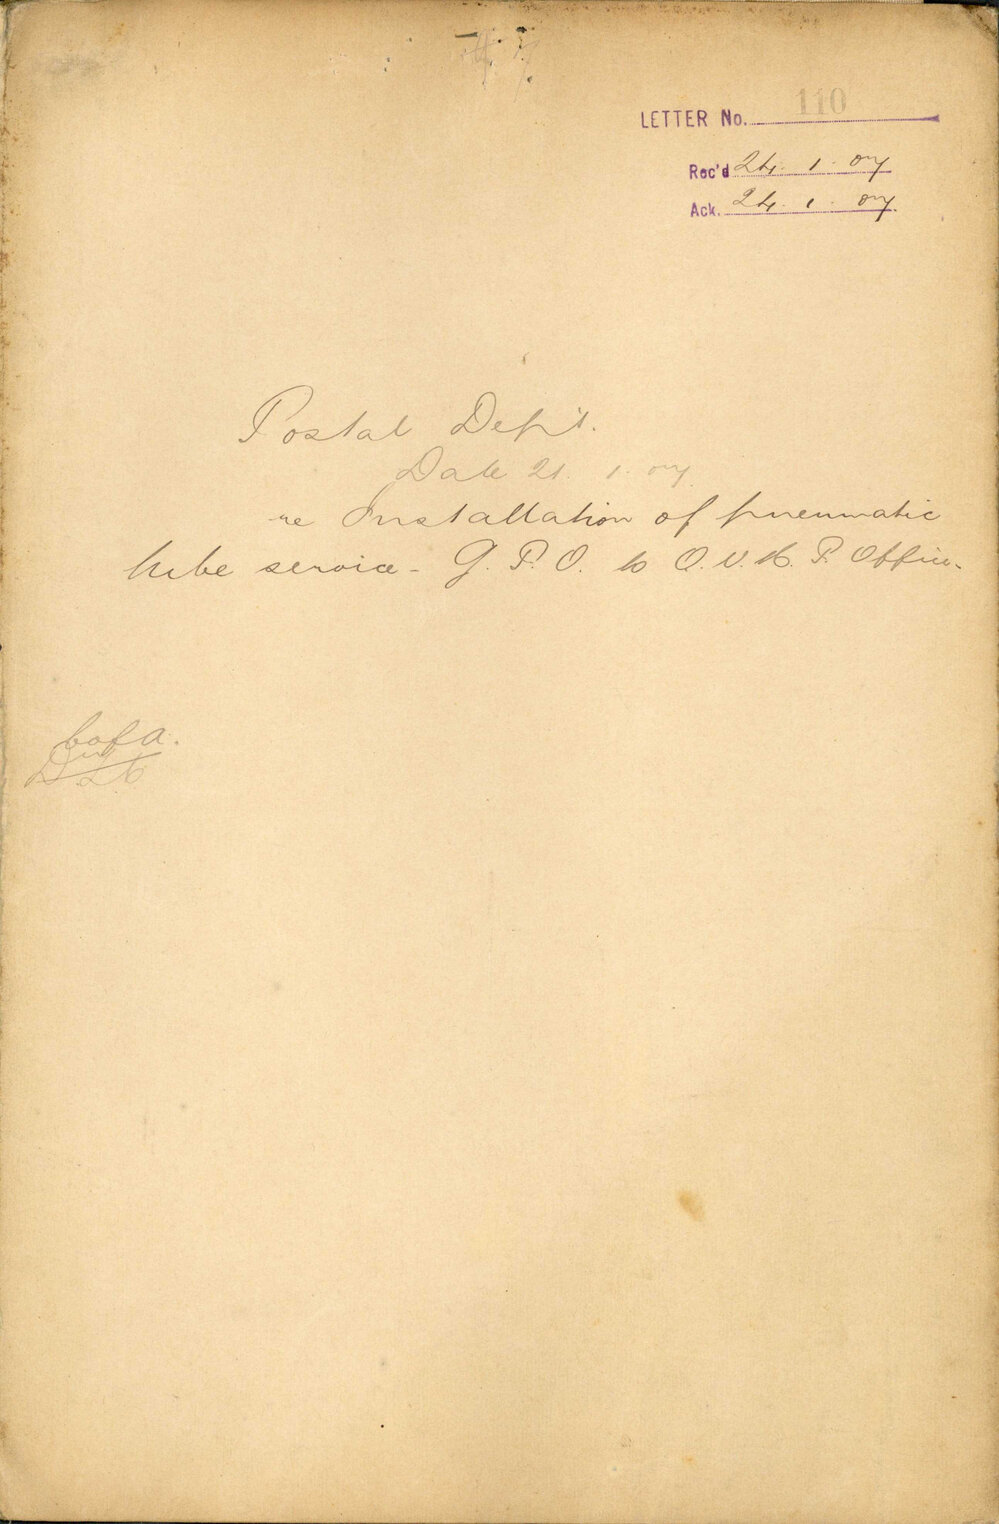 LETTER No. 110
Rec'd 24. 1. 07
Ack. 24. 1. 07.
Postal Dept.
Date 21. 1. 07.
re Installation of pneumatic
tube service - G. P. O. to Q. V. M. P. Office.
C of A.